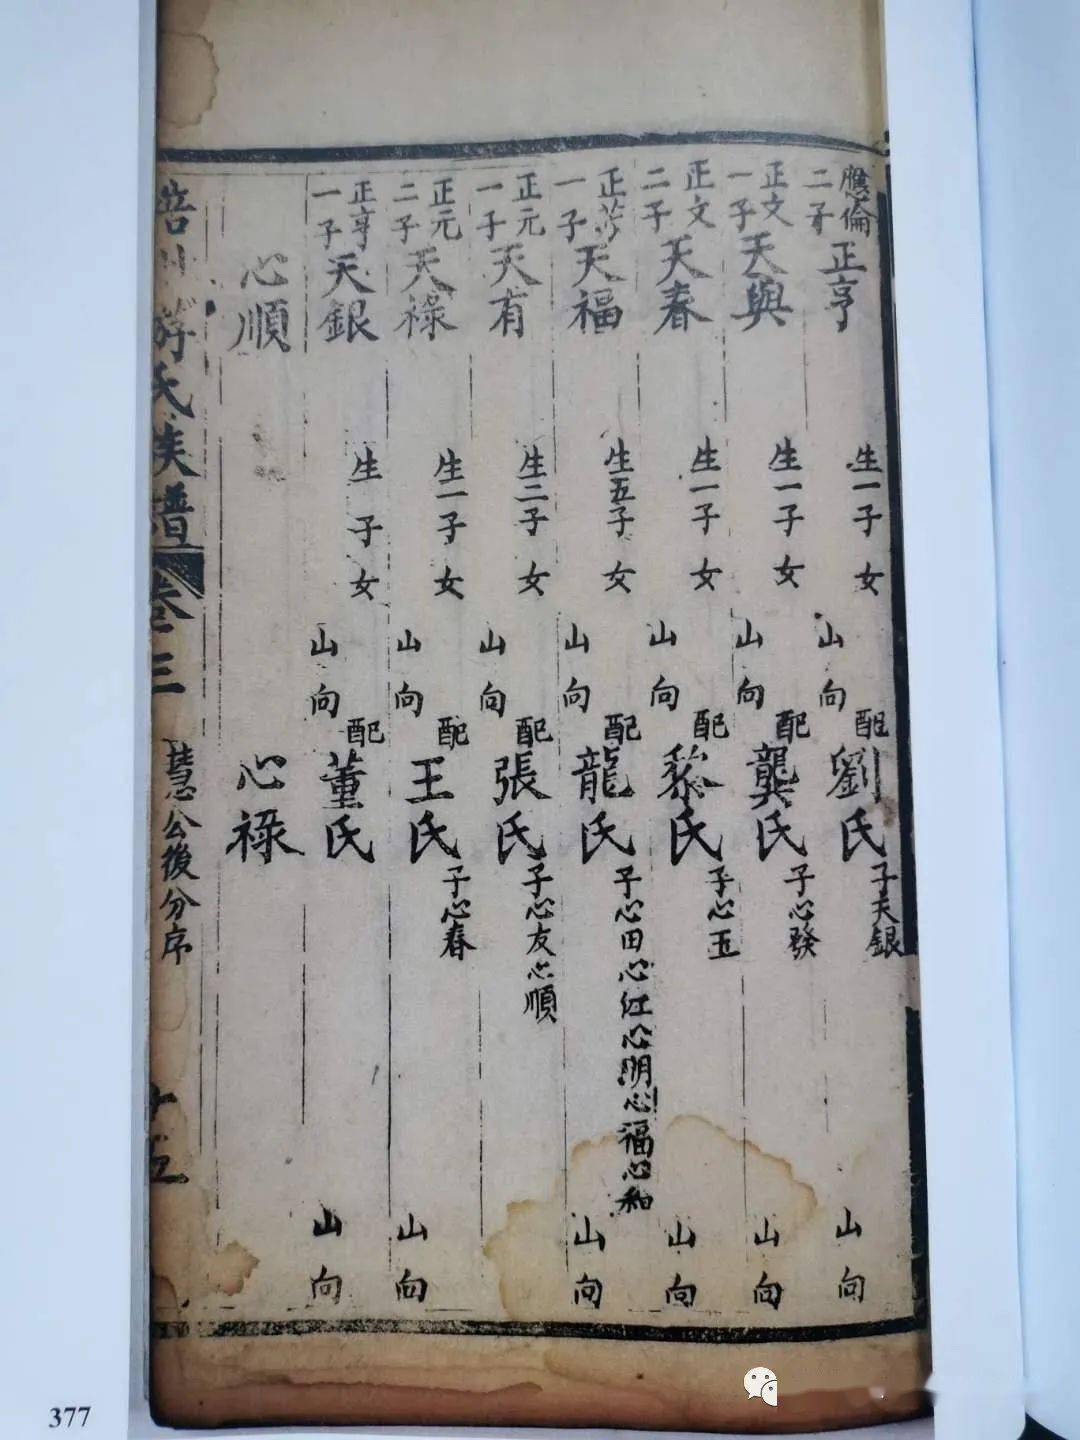 應倫二子正亨
生一子 女 山向
配劉氏子天銀 山向
正文一子天與
生一子 女 山向
配龔氏子心發 山向
正文二子天春
生一子 女 山向
配黎氏子心玉 山向
正芳一子天福
生五子 女 山向
配龍氏子心田心江心明心福心和 山向
正元一子天有
生二子 女 山向
配張氏子心友心順
正元二子天祿
生一子 女 山向
配王氏子心春 山向
正亨一子天銀
生 子 女 山向
配董氏 山向
心順 心祿
游氏族譜 卷三 慧公後分序 十五
377